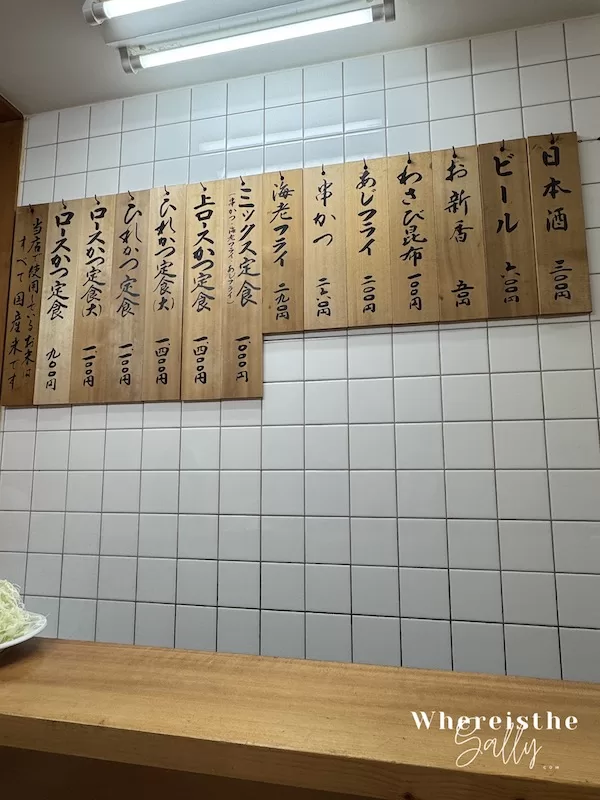 日本酒 三〇〇円
ビール 六〇〇円
お新香 五〇円
わさび昆布 一〇〇円
あじフライ 二〇〇円
串かつ
海老フライ 二九〇円
ミックス定食 一、〇〇〇円
(串かつ・海老フライ・あじフライ)
上ロースかつ定食 一、四〇〇円
ひれかつ定食(大) 一、四〇〇円
ひれかつ定食 一、一〇〇円
ロースかつ定食(大) 一、一〇〇円
ロースかつ定食 九〇〇円
当店で使用しているお米は
すべて国産米です
Whereisthe
Sally
.COM